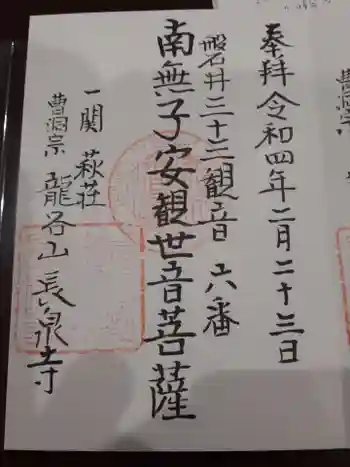 奉拝 令和四年二月二十三日
磐井三十三観音 六番
南無子安観世音菩薩
一関 萩荘
曹洞宗 龍谷山 長泉寺